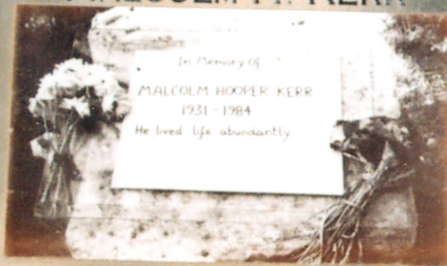 MALCOLM H. KERR
In Memory of
MALCOLM HOOPER KERR
1931 - 1984
He lived life abundantly